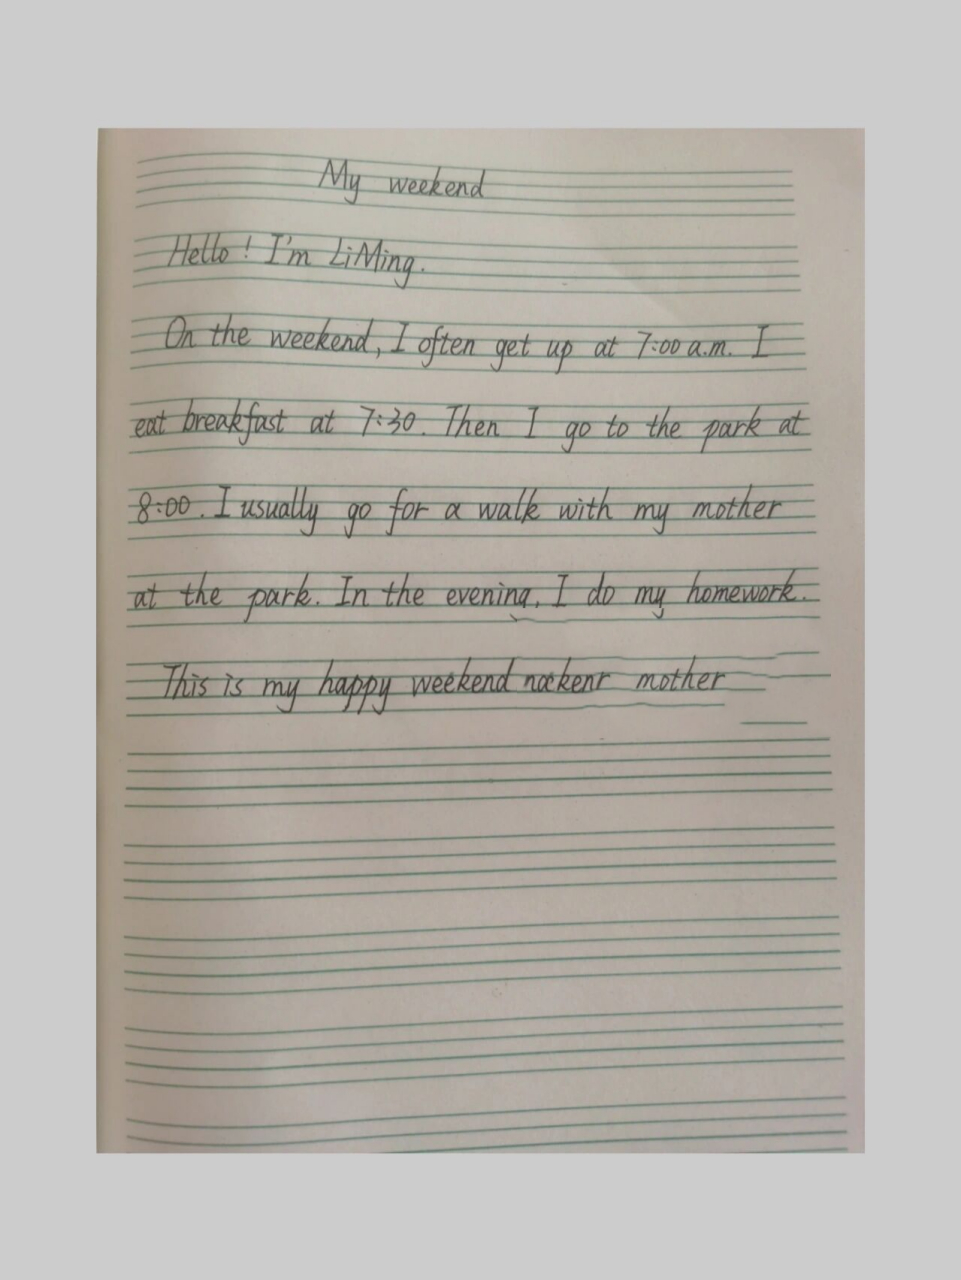 My weekend
Hello! I'm LiMing.
On the weekend, I often get up at 7:00 a.m. I
eat breakfast at 7:30. Then I go to the park at
8:00. I usually go for a walk with my mother
at the park. In the evening, I do my homework.
This is my happy weekend mother